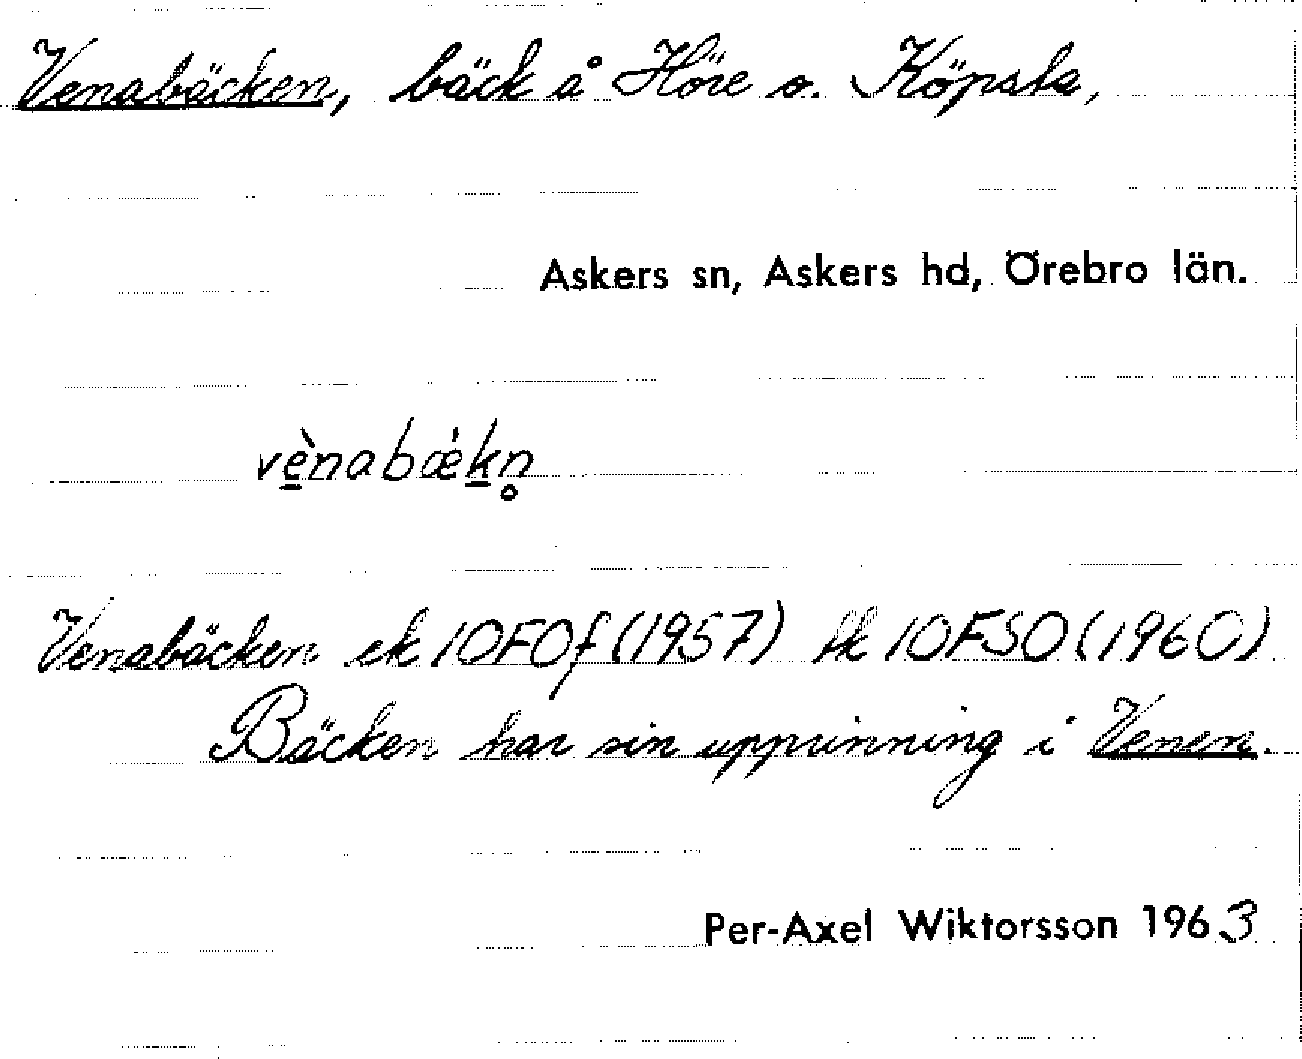 Venabäcken, bäck å Höre o. Köpsta,
Askers sn, Askers hd, Örebro län.
vè̠nabæ̀k̠n̥
Venabäcken ek 10F0f (1957) fk 10FSO (1960)
Bäcken har sin upprinning i Venen.
Per-Axel Wiktorsson 1963